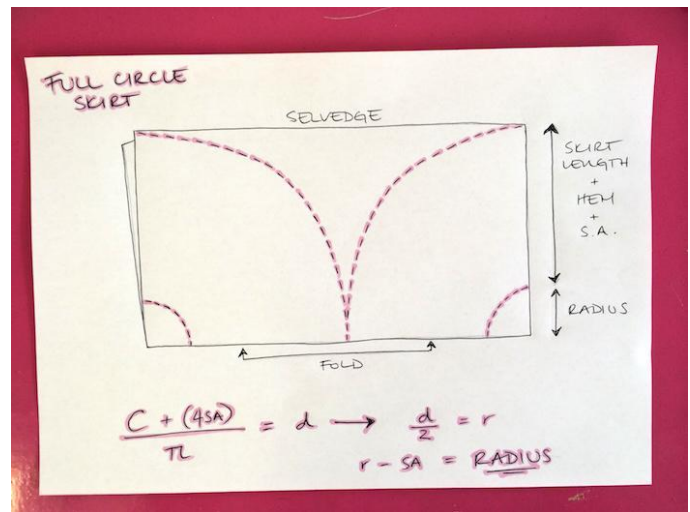 FULL CIRCLE
SKIRT
SELVEDGE
SKIRT
LENGTH
+
HEM
+
S.A.
RADIUS
FOLD
C + (4SA) / π = d → d/2 = r
r - SA = RADIUS